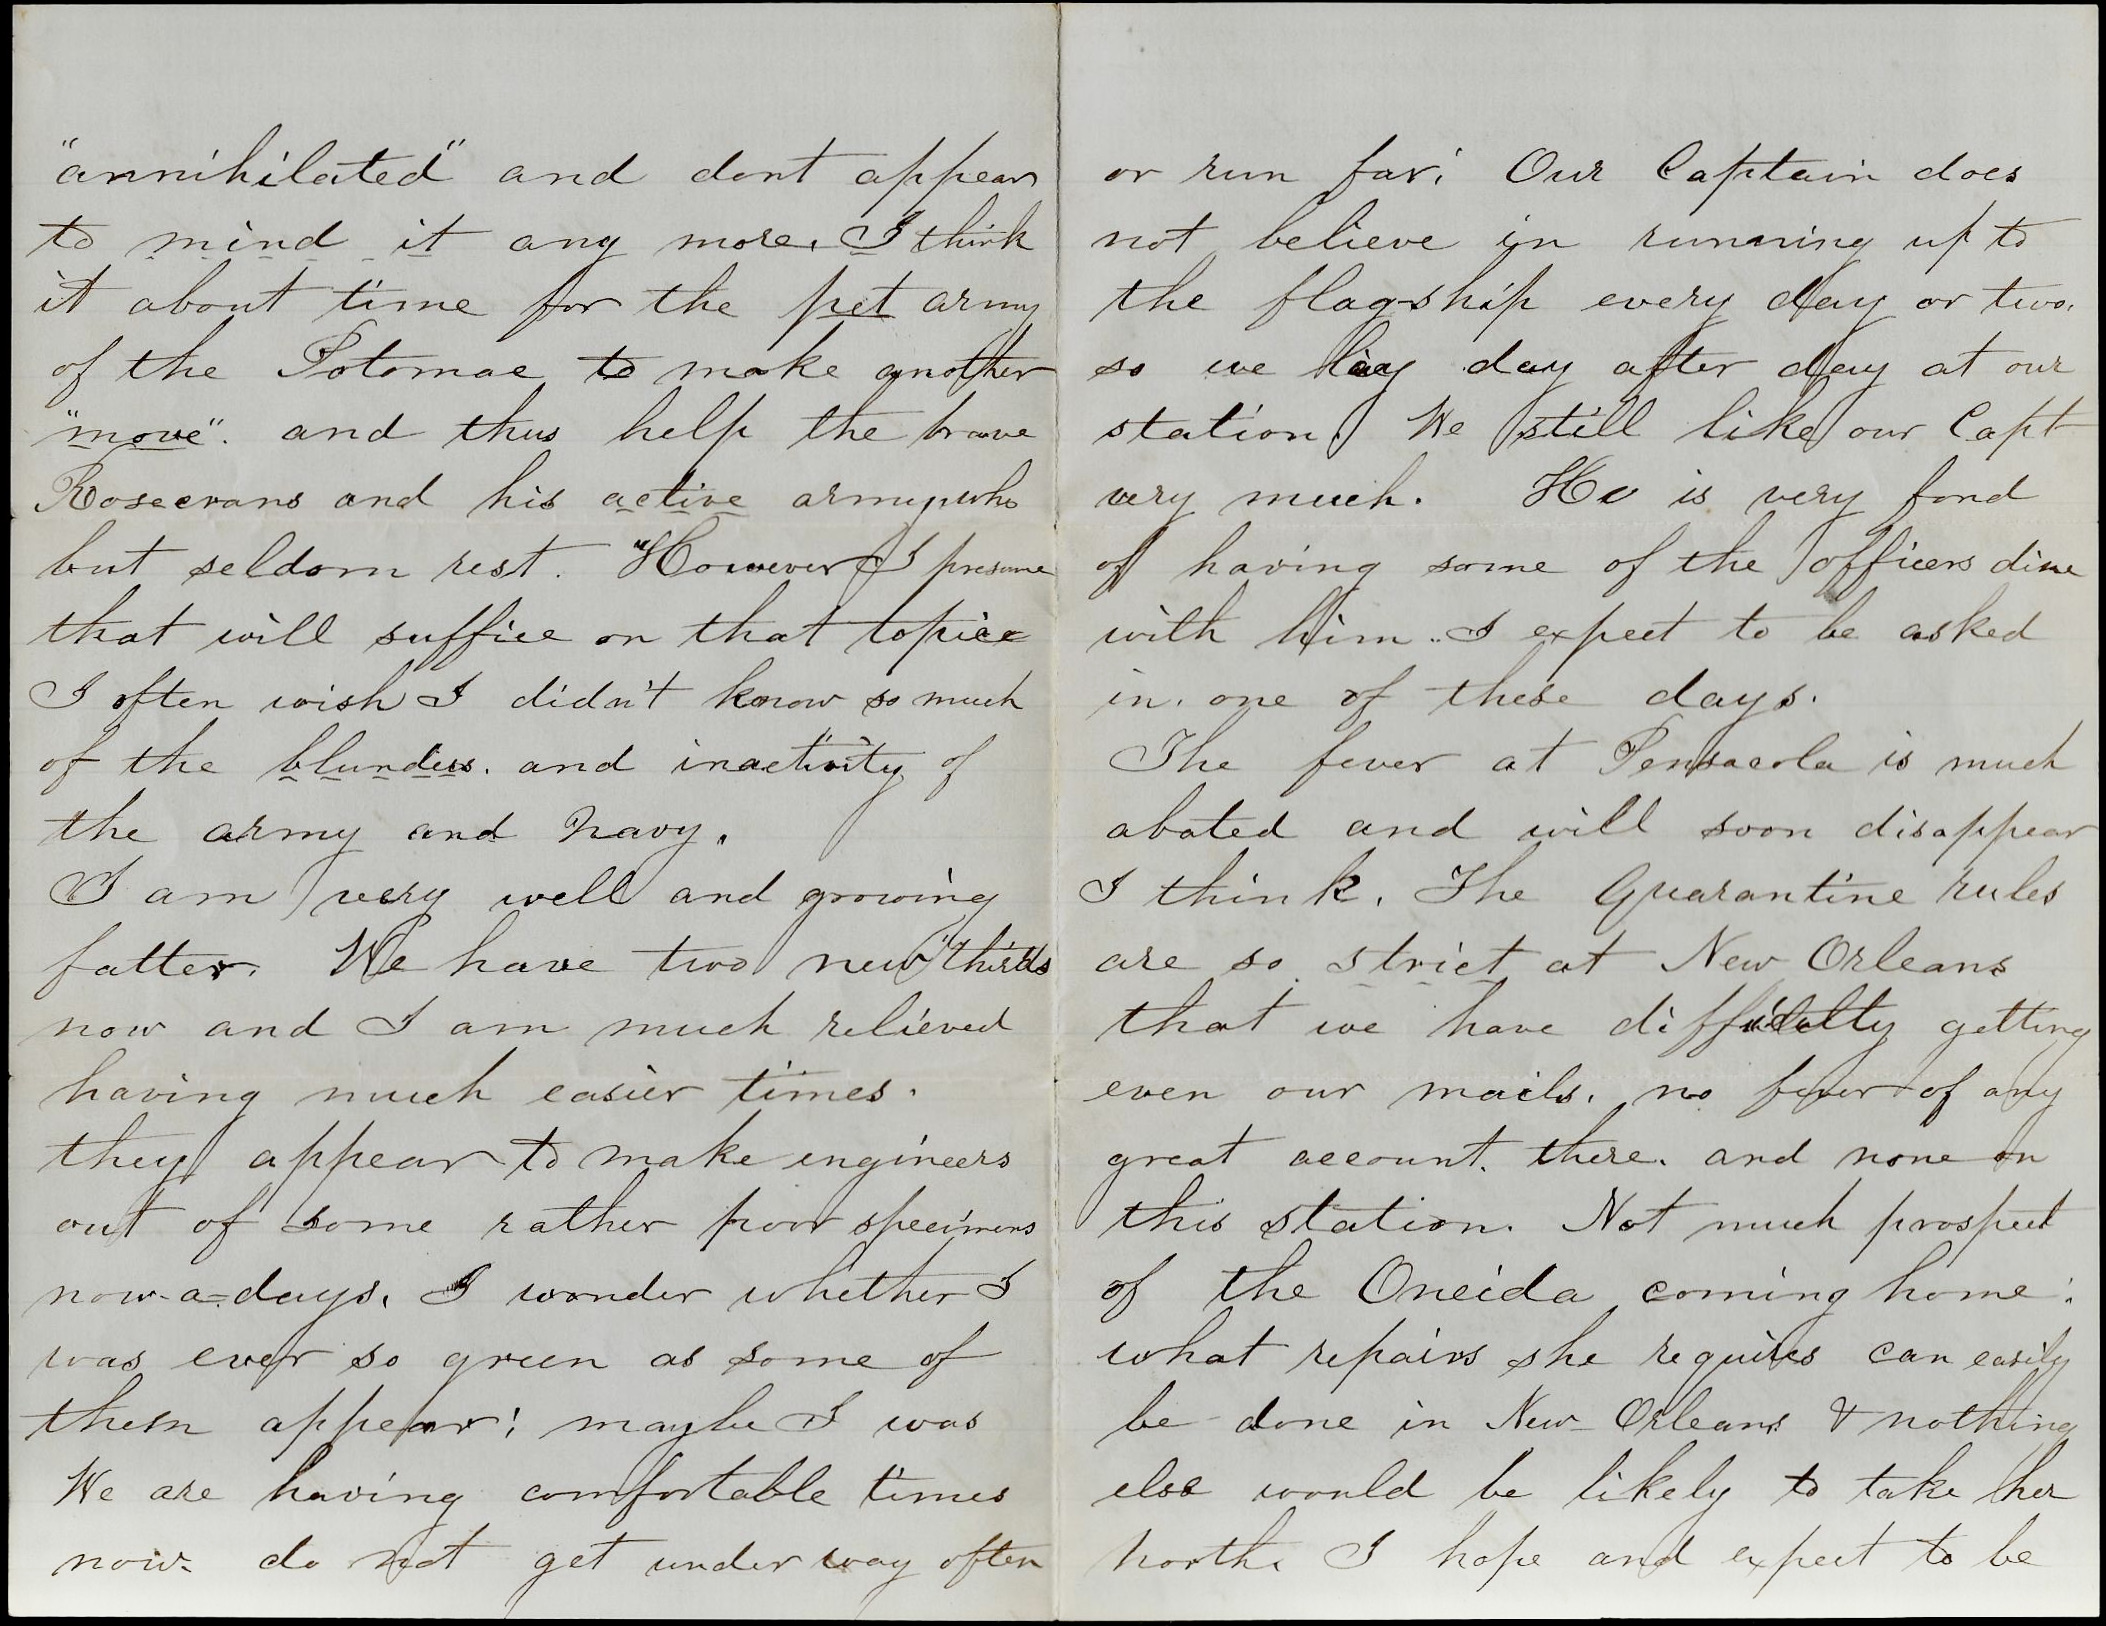 "annihilated" and dont appear
to mind it any more. I think
it about time for the pet army
of the Potomac to make another
"move". and thus help the brave
Rosecrans and his active army, who
but seldom rest. "However I presume
that will suffice on that topic
I often wish I didn't know so much
of the blunders. and inactivity of
the army and Navy.
I am very well and growing
fatter. We have two new "thirds
now and I am much relieved
having much easier times.
they appear to make engineers
out of some rather poor specimens
now-a-days. I wonder whether I
was ever so green as some of
them appear; maybe I was
We are having comfortable times
now. do not get under way often
or run far; Our Captain does
not believe in running up to
the flag-ship every day or two.
so we lay day after day at our
station. We still like our Capt
very much. He is very fond
of having some of the officers dine
with him.. I expect to be asked
in. one of these days.
The fever at Pensacola is much
abated and will soon disappear
I think. The Quarantine rules
are so strict at New Orleans
that we have difficulty getting
even our mails. no fever of any
great account. there. and none on
this station. Not much prospect
of the Oneida coming home:
what repairs she requires can easily
be done in New Orleans & nothing
else would be likely to take her
north. I hope and expect to be